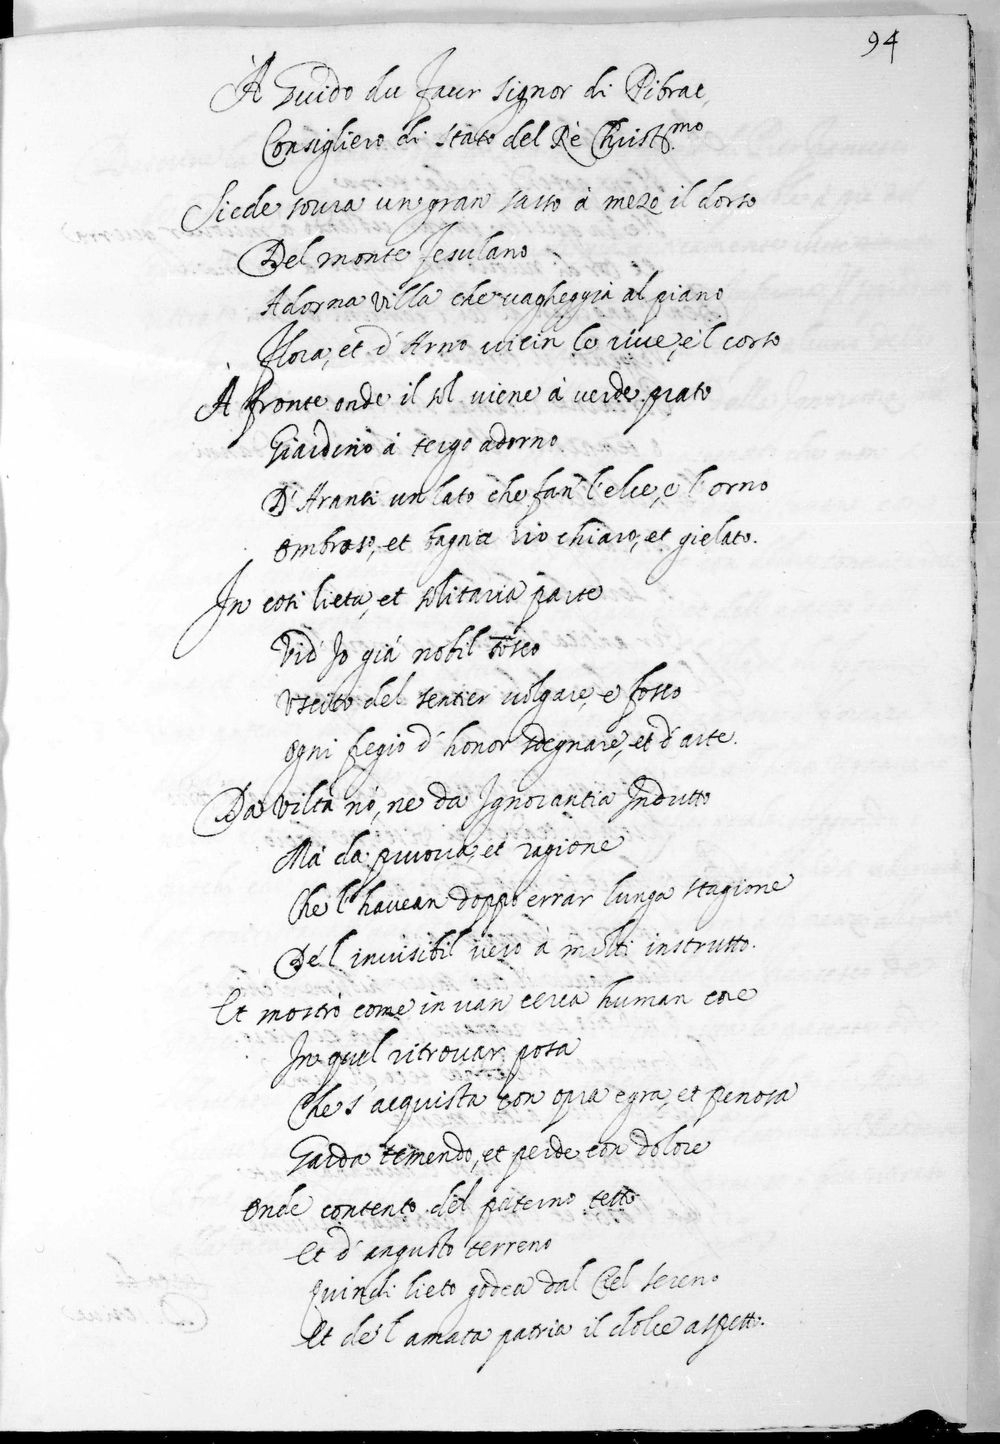 94
A Guido du Faur signor di Pibrac,
Consigliero di stato del Rè Christ.mo
Siede soura un gran sasso à mezo il dorso
Del monte Fesulano
Adorna villa che uagheggia al piano
Flora, et d'Arno uicin le riue, e'l corso
À fronte onde il sol uiene à uerde prato
Giardino à tergo adorno
D'Aranti un lato che fan l'elce, e l'orno
Ombroso, et bagna rio chiaro, et gielato.
In cosi lieta, et solitaria parte
Vid' Io già nobil Tosco
Uscito del sentier uolgare, e fosco
Ogni fregio d'honor sdegnare, et d'arte.
Da viltà nò, ne da Ignorantia Indutto
Mà da pruoua, et ragione
Che l'hauean doppo errar lunga stagione
De'l inuisibil uero à molti instrutto.
Et mostrò come in uan cerca human core
In quel ritrouar posa
Che s'acquista con opra egra, et penosa
Garda temendo, et perde con dolore
Onde contento del paterno tetto
Et d'angusto terreno
Quindi lieto godea dal Ciel sereno
Et de'l amata patria il dolce aspetto.